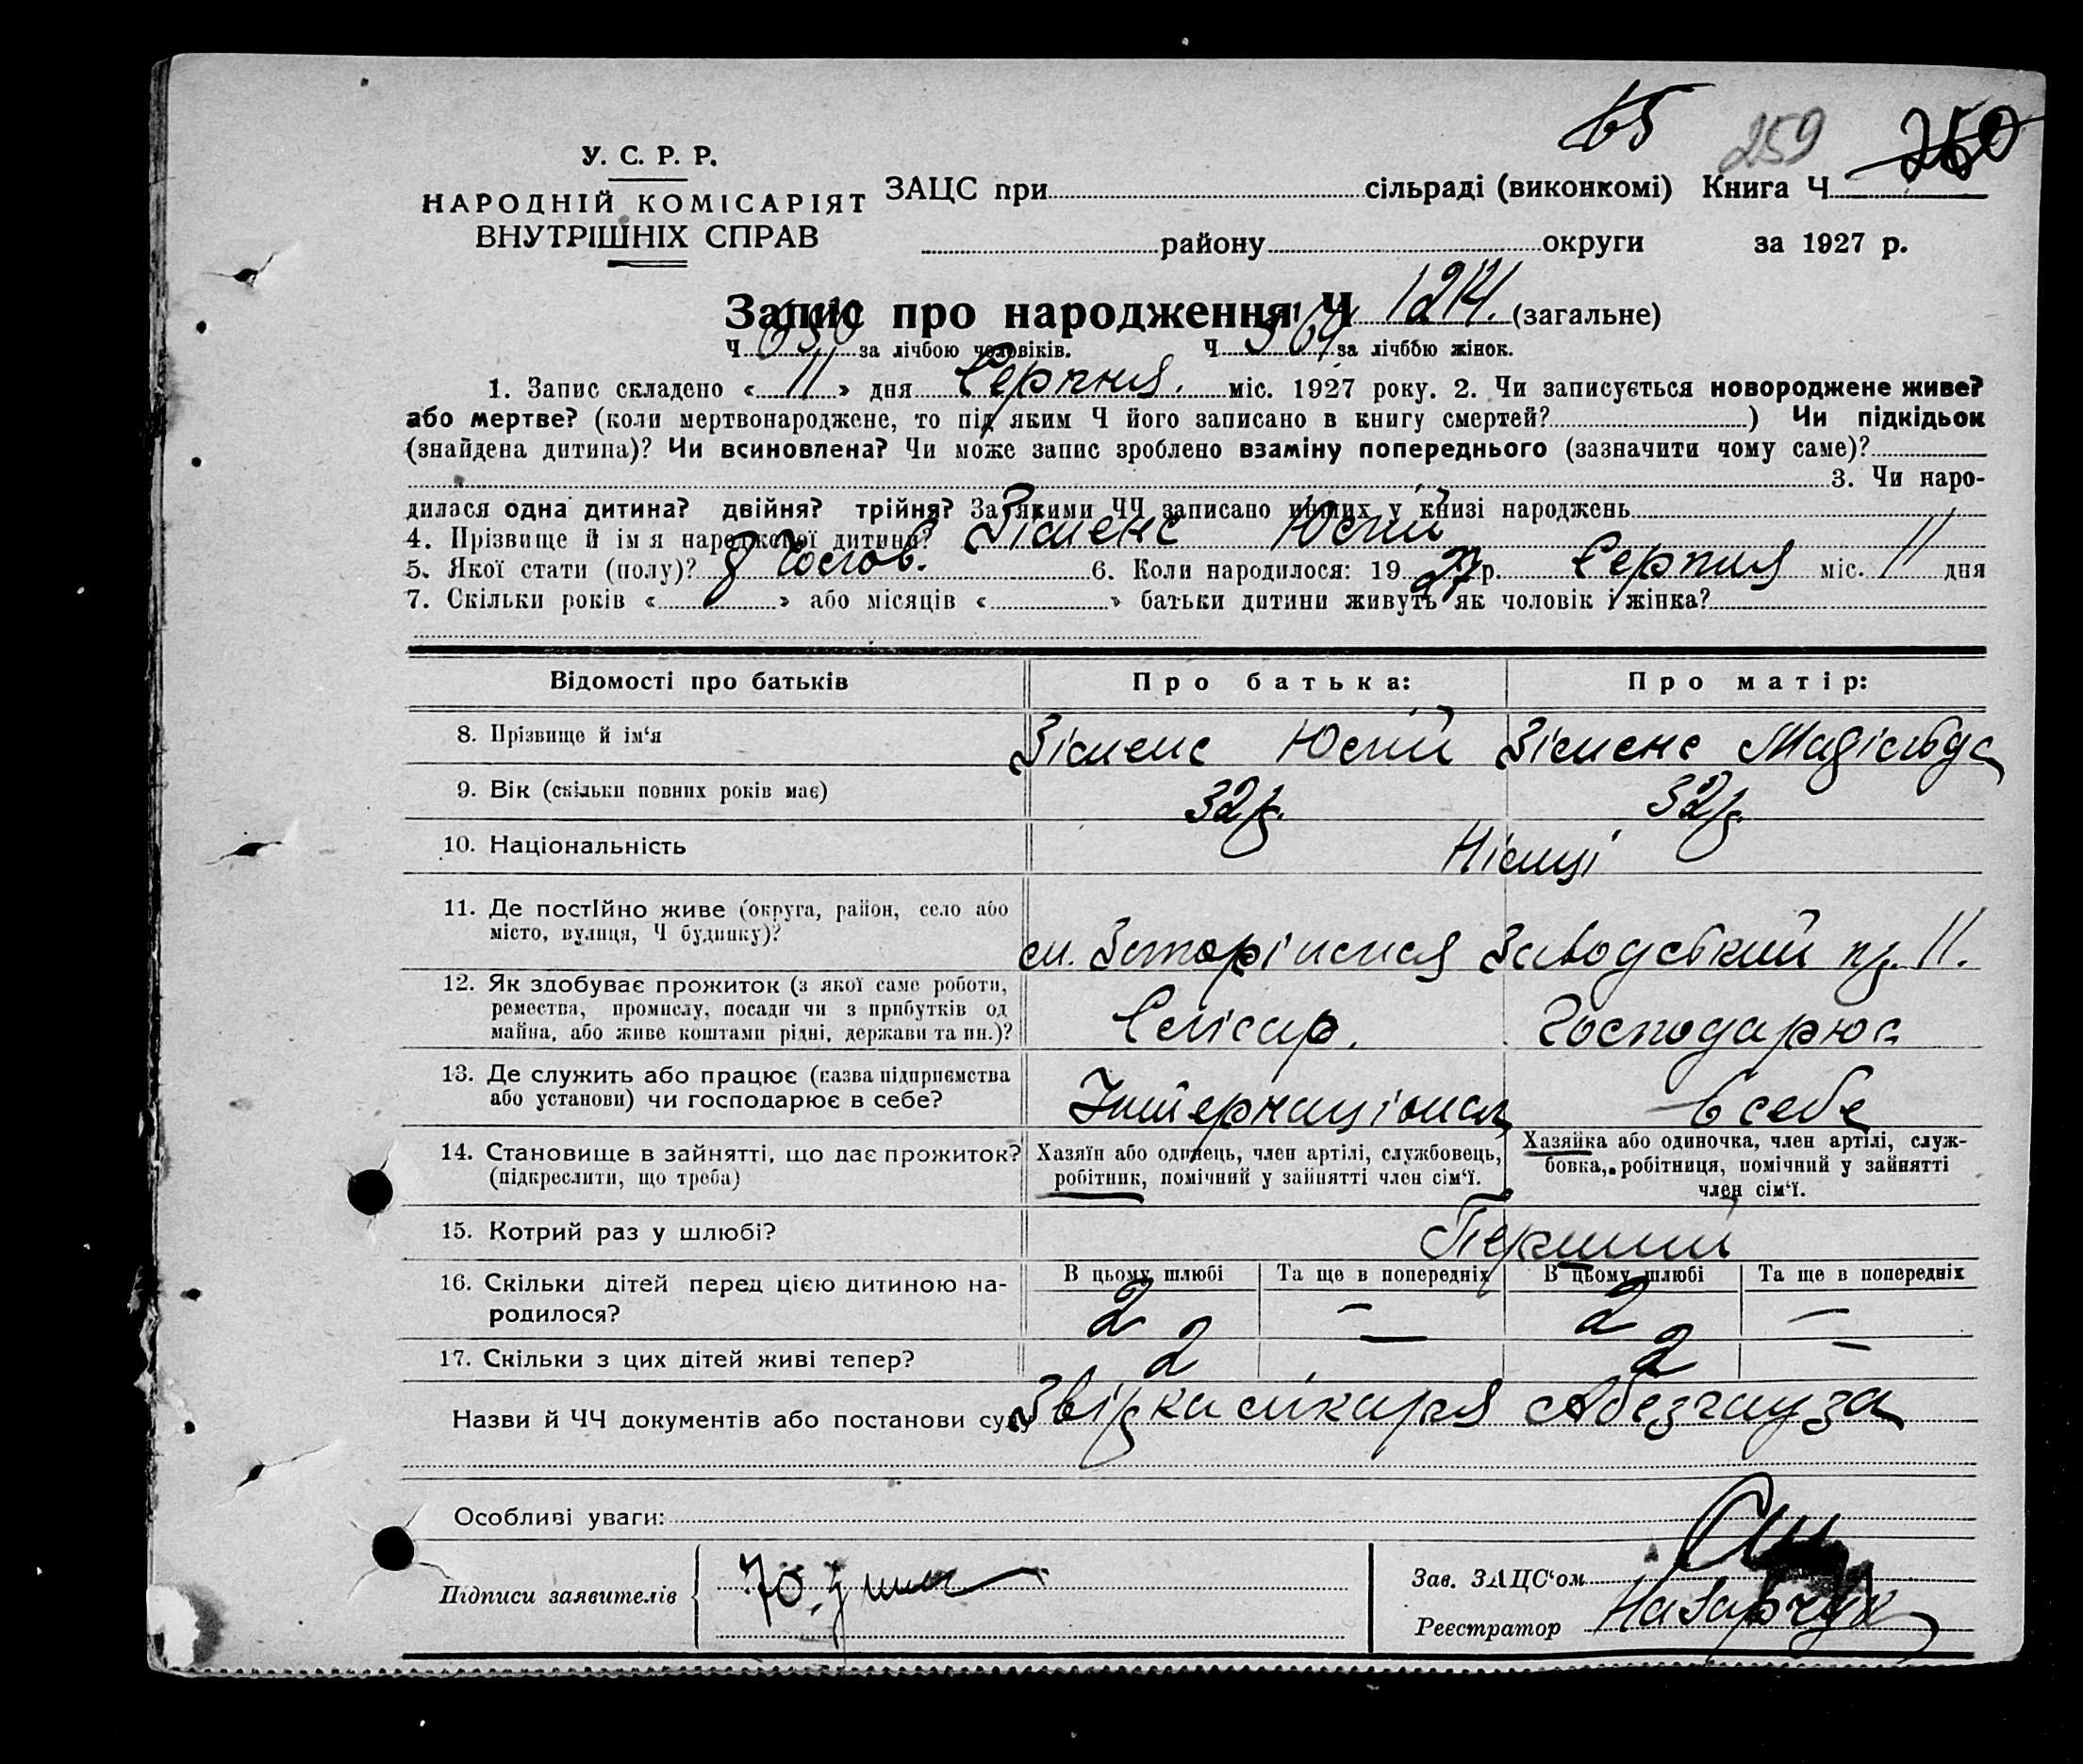 65 259 250
У. С. Р. Р.
НАРОДНІЙ КОМІСАРІЯТ
ВНУТРІШНІХ СПРАВ
ЗАЦС при сільраді (виконкомі) Книга Ч
району округи за 1927 р.
Запис про народження Ч 1214. (загальне)
Ч 650 за лічбою чоловіків. Ч 564 за лічбою жінок.
1. Запис складено « 11 » дня Серпня. міс. 1927 року. 2. Чи записується новороджене живе?
або мертве? (коли мертвонароджене, то під яким Ч його записано в книгу смертей? ) Чи підкідьок
(знайдена дитина)? Чи всиновлена? Чи може запис зроблено взаміну попереднього (зазначити чому саме)?
3. Чи наро-
дилася одна дитина? двійня? трійня? За якими ЧЧ записано инших у книзі народжень
4. Прізвище й ім я народженої дитини? Зіменс Юлій
5. Якої стати (полу)? Чолов. 6. Коли народилося: 19 27 р. Серпня міс. 11 дня
7. Скільки років « » або місяців « » батьки дитини живуть як чоловік і жінка?
Відомості про батьків Про батька: Про матір:
8. Прізвище й ім'я Зіменс Юлій Зіменс Матільда
9. Вік (скільки повних років має) 32р. 32р.
10. Національність Німці
11. Де постійно живе (округа, район, село або
місто, вулиця, Ч будинку)? м. Запоріжжя Заводський пр. 11.
12. Як здобуває прожиток (з якої саме роботи,
ремества, промислу, посади чи з прибутків од
майна, або живе коштами рідні, держави та ин.)? Слюсар. Господарює
13. Де служить або працює (назва підприємства
або установи) чи господарює в себе? Інтернаціонал в себе
14. Становище в зайнятті, що дає прожиток?
(підкреслити, що треба)
Хазяїн або одинець, член артілі, службовець,
робітник, помічний у зайнятті член сім'ї.
Хазяйка або одиночка, член артілі, служ-
бовка, робітниця, помічний у зайнятті
член сім'ї.
15. Котрий раз у шлюбі? Перший
16. Скільки дітей перед цією дитиною на-
родилося?
В цьому шлюбі Та ще в попередніх В цьому шлюбі Та ще в попередніх
2 — 2 —
17. Скільки з цих дітей живі тепер? 2 — 2 —
Назви й ЧЧ документів або постанови суду Звідка лікаря Абезгауза
Особливі уваги:
Підписи заявителів
Зав. ЗАЦС'ом
Реєстратор Назарчук